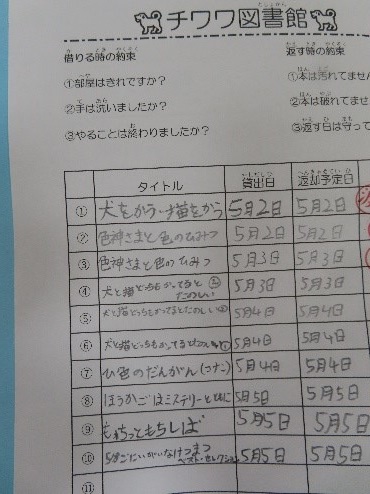 チワワ図書館
借りる時の約束
①部屋はきれですか?
②手は洗いましたか?
③やることは終わりましたか?
返す時の約束
①本は汚れてません
②本は破れてませ
③返す日は守って
タイトル 貸出日 返却予定日
① 犬をかう・猫をかう 5月2日 5月2日
② 色神さまと色のひみつ 5月2日 5月2日
③ 色神さまと色のひみつ 5月3日 5月3日
④ 犬と猫どっちもかってると たのしい 5月3日 5月3日
⑤ 犬と猫どっちもかってるとたのしい 5月4日 5月4日
⑥ 犬と猫どっちもかってるとたのしい 5月4日 5月4日
⑦ ひ色のだんがん(コナン) 5月4日 5月4日
⑧ ほうかごはミステリーとともに 5月5日 5月5日
⑨ もちもちしば 5月5日 5月5日
⑩ 5分ごにいがいなけつまつ ベスト・セレクション 5月5日 5月5日
⑪